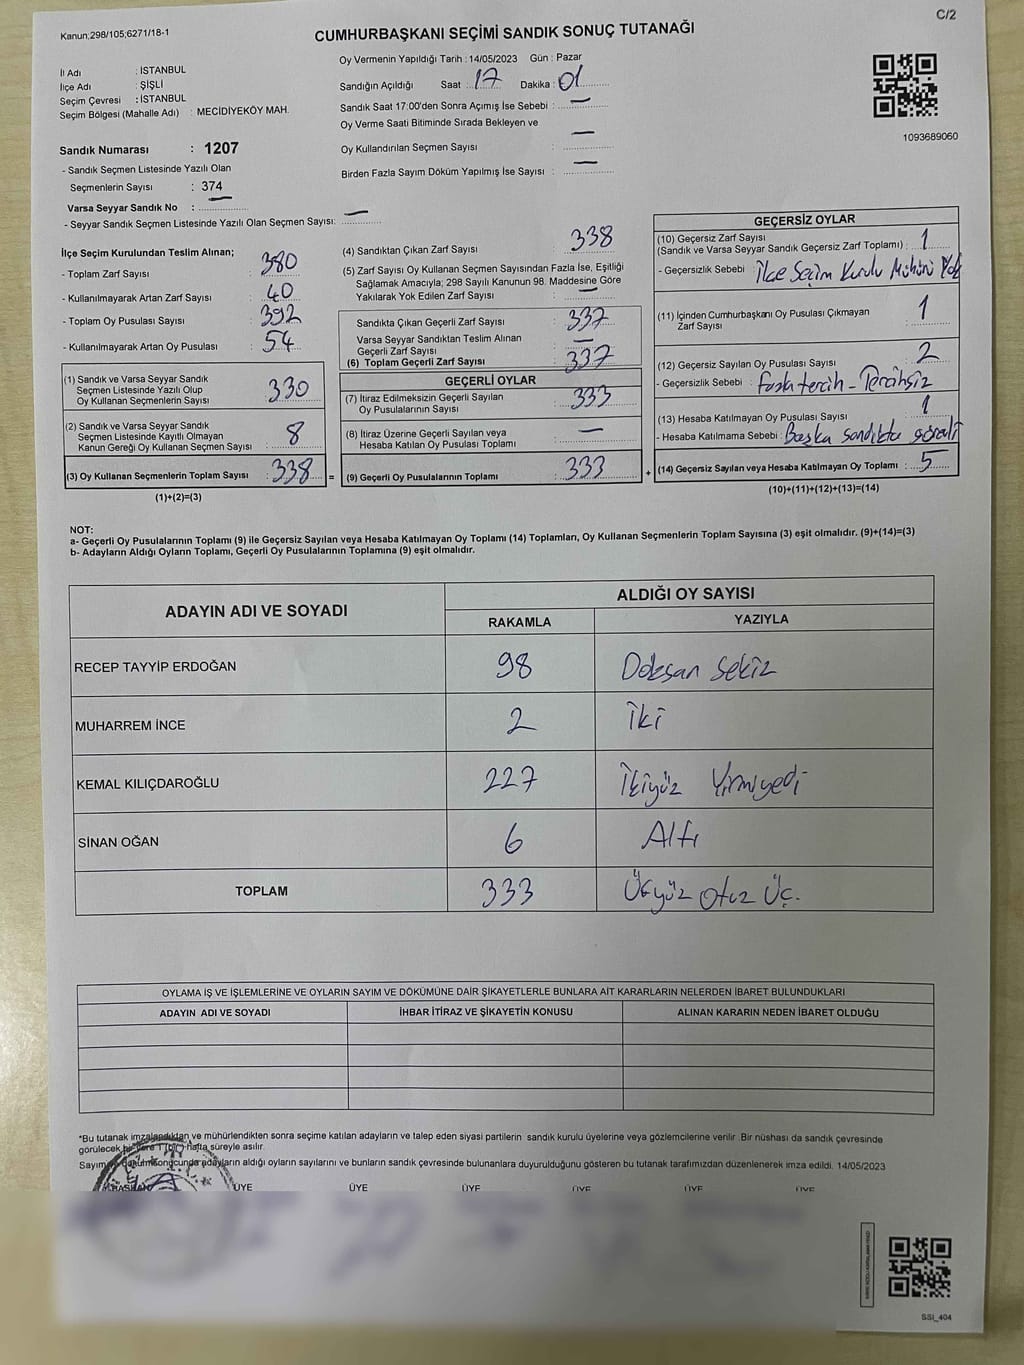 C/2
Kanun;298/105;6271/18-1
CUMHURBAŞKANI SEÇİMİ SANDIK SONUÇ TUTANAĞI
İl Adı : İSTANBUL
İlçe Adı : ŞİŞLİ
Seçim Çevresi : İSTANBUL
Seçim Bölgesi (Mahalle Adı) : MECİDİYEKÖY MAH.
Oy Vermenin Yapıldığı Tarih : 14/05/2023 Gün : Pazar
Sandığın Açıldığı Saat : 17 Dakika : 01
Sandık Saat 17:00'den Sonra Açımış İse Sebebi : —
Oy Verme Saati Bitiminde Sırada Bekleyen ve
Oy Kullandırılan Seçmen Sayısı : —
Birden Fazla Sayım Döküm Yapılmış İse Sayısı : —
1093689060
Sandık Numarası : 1207
- Sandık Seçmen Listesinde Yazılı Olan
Seçmenlerin Sayısı : 374
Varsa Seyyar Sandık No : —
- Seyyar Sandık Seçmen Listesinde Yazılı Olan Seçmen Sayısı: —
İlçe Seçim Kurulundan Teslim Alınan;
- Toplam Zarf Sayısı : 380
- Kullanılmayarak Artan Zarf Sayısı : 40
- Toplam Oy Pusulası Sayısı : 392
- Kullanılmayarak Artan Oy Pusulası : 54
(1) Sandık ve Varsa Seyyar Sandık
Seçmen Listesinde Yazılı Olup
Oy Kullanan Seçmenlerin Sayısı : 330
(2) Sandık ve Varsa Seyyar Sandık
Seçmen Listesinde Kayıtlı Olmayan
Kanun Gereği Oy Kullanan Seçmen Sayısı : 8
(3) Oy Kullanan Seçmenlerin Toplam Sayısı : 338 =
(1)+(2)=(3)
(4) Sandıktan Çıkan Zarf Sayısı : 338
(5) Zarf Sayısı Oy Kullanan Seçmen Sayısından Fazla İse, Eşitliği
Sağlamak Amacıyla; 298 Sayılı Kanunun 98. Maddesine Göre
Yakılarak Yok Edilen Zarf Sayısı : —
Sandıkta Çıkan Geçerli Zarf Sayısı : 337
Varsa Seyyar Sandıktan Teslim Alınan
Geçerli Zarf Sayısı : —
(6) Toplam Geçerli Zarf Sayısı : 337
GEÇERLİ OYLAR
(7) İtiraz Edilmeksizin Geçerli Sayılan
Oy Pusulalarının Sayısı : 333
(8) İtiraz Üzerine Geçerli Sayılan veya
Hesaba Katılan Oy Pusulası Toplamı : —
(9) Geçerli Oy Pusulalarının Toplamı : 333 +
GEÇERSİZ OYLAR
(10) Geçersiz Zarf Sayısı
(Sandık ve Varsa Seyyar Sandık Geçersiz Zarf Toplamı) : 1
- Geçersizlik Sebebi : İlçe Seçim Kurulu Mühürü Yok
(11) İçinden Cumhurbaşkanı Oy Pusulası Çıkmayan
Zarf Sayısı : 1
(12) Geçersiz Sayılan Oy Pusulası Sayısı : 2
- Geçersizlik Sebebi : fazla tercih - Tercihsiz
(13) Hesaba Katılmayan Oy Pusulası Sayısı : 1
- Hesaba Katılmama Sebebi : Başka sandıkta görevli
(14) Geçersiz Sayılan veya Hesaba Katılmayan Oy Toplamı : 5
(10)+(11)+(12)+(13)=(14)
NOT:
a- Geçerli Oy Pusulalarının Toplamı (9) ile Geçersiz Sayılan veya Hesaba Katılmayan Oy Toplamı (14) Toplamları, Oy Kullanan Seçmenlerin Toplam Sayısına (3) eşit olmalıdır. (9)+(14)=(3)
b- Adayların Aldığı Oyların Toplamı, Geçerli Oy Pusulalarının Toplamına (9) eşit olmalıdır.
ADAYIN ADI VE SOYADI ALDIĞI OY SAYISI
RAKAMLA YAZIYLA
RECEP TAYYİP ERDOĞAN 98 Doksan Sekiz
MUHARREM İNCE 2 İki
KEMAL KILIÇDAROĞLU 227 İkiyüz Yirmiyedi
SİNAN OĞAN 6 Altı
TOPLAM 333 Üçyüz Otuz Üç.
OYLAMA İŞ VE İŞLEMLERİNE VE OYLARIN SAYIM VE DÖKÜMÜNE DAİR ŞİKAYETLERLE BUNLARA AİT KARARLARIN NELERDEN İBARET BULUNDUKLARI
ADAYIN ADI VE SOYADI İHBAR İTİRAZ VE ŞİKAYETİN KONUSU ALINAN KARARIN NEDEN İBARET OLDUĞU
*Bu tutanak imzalandıktan ve mühürlendikten sonra seçime katılan adayların ve talep eden siyasi partilerin sandık kurulu üyelerine veya gözlemcilerine verilir .Bir nüshası da sandık çevresinde
görülecek bir yere 1 (bir) hafta süreyle asılır.
Sayım dökümü sonucunda adayların aldığı oyların sayılarını ve bunların sandık çevresinde bulunanlara duyurulduğunu gösteren bu tutanak tarafımızdan düzenlenerek imza edildi. 14/05/2023
BAŞKAN ÜYE ÜYE ÜYE ÜYE ÜYE ÜYE
SSI_404